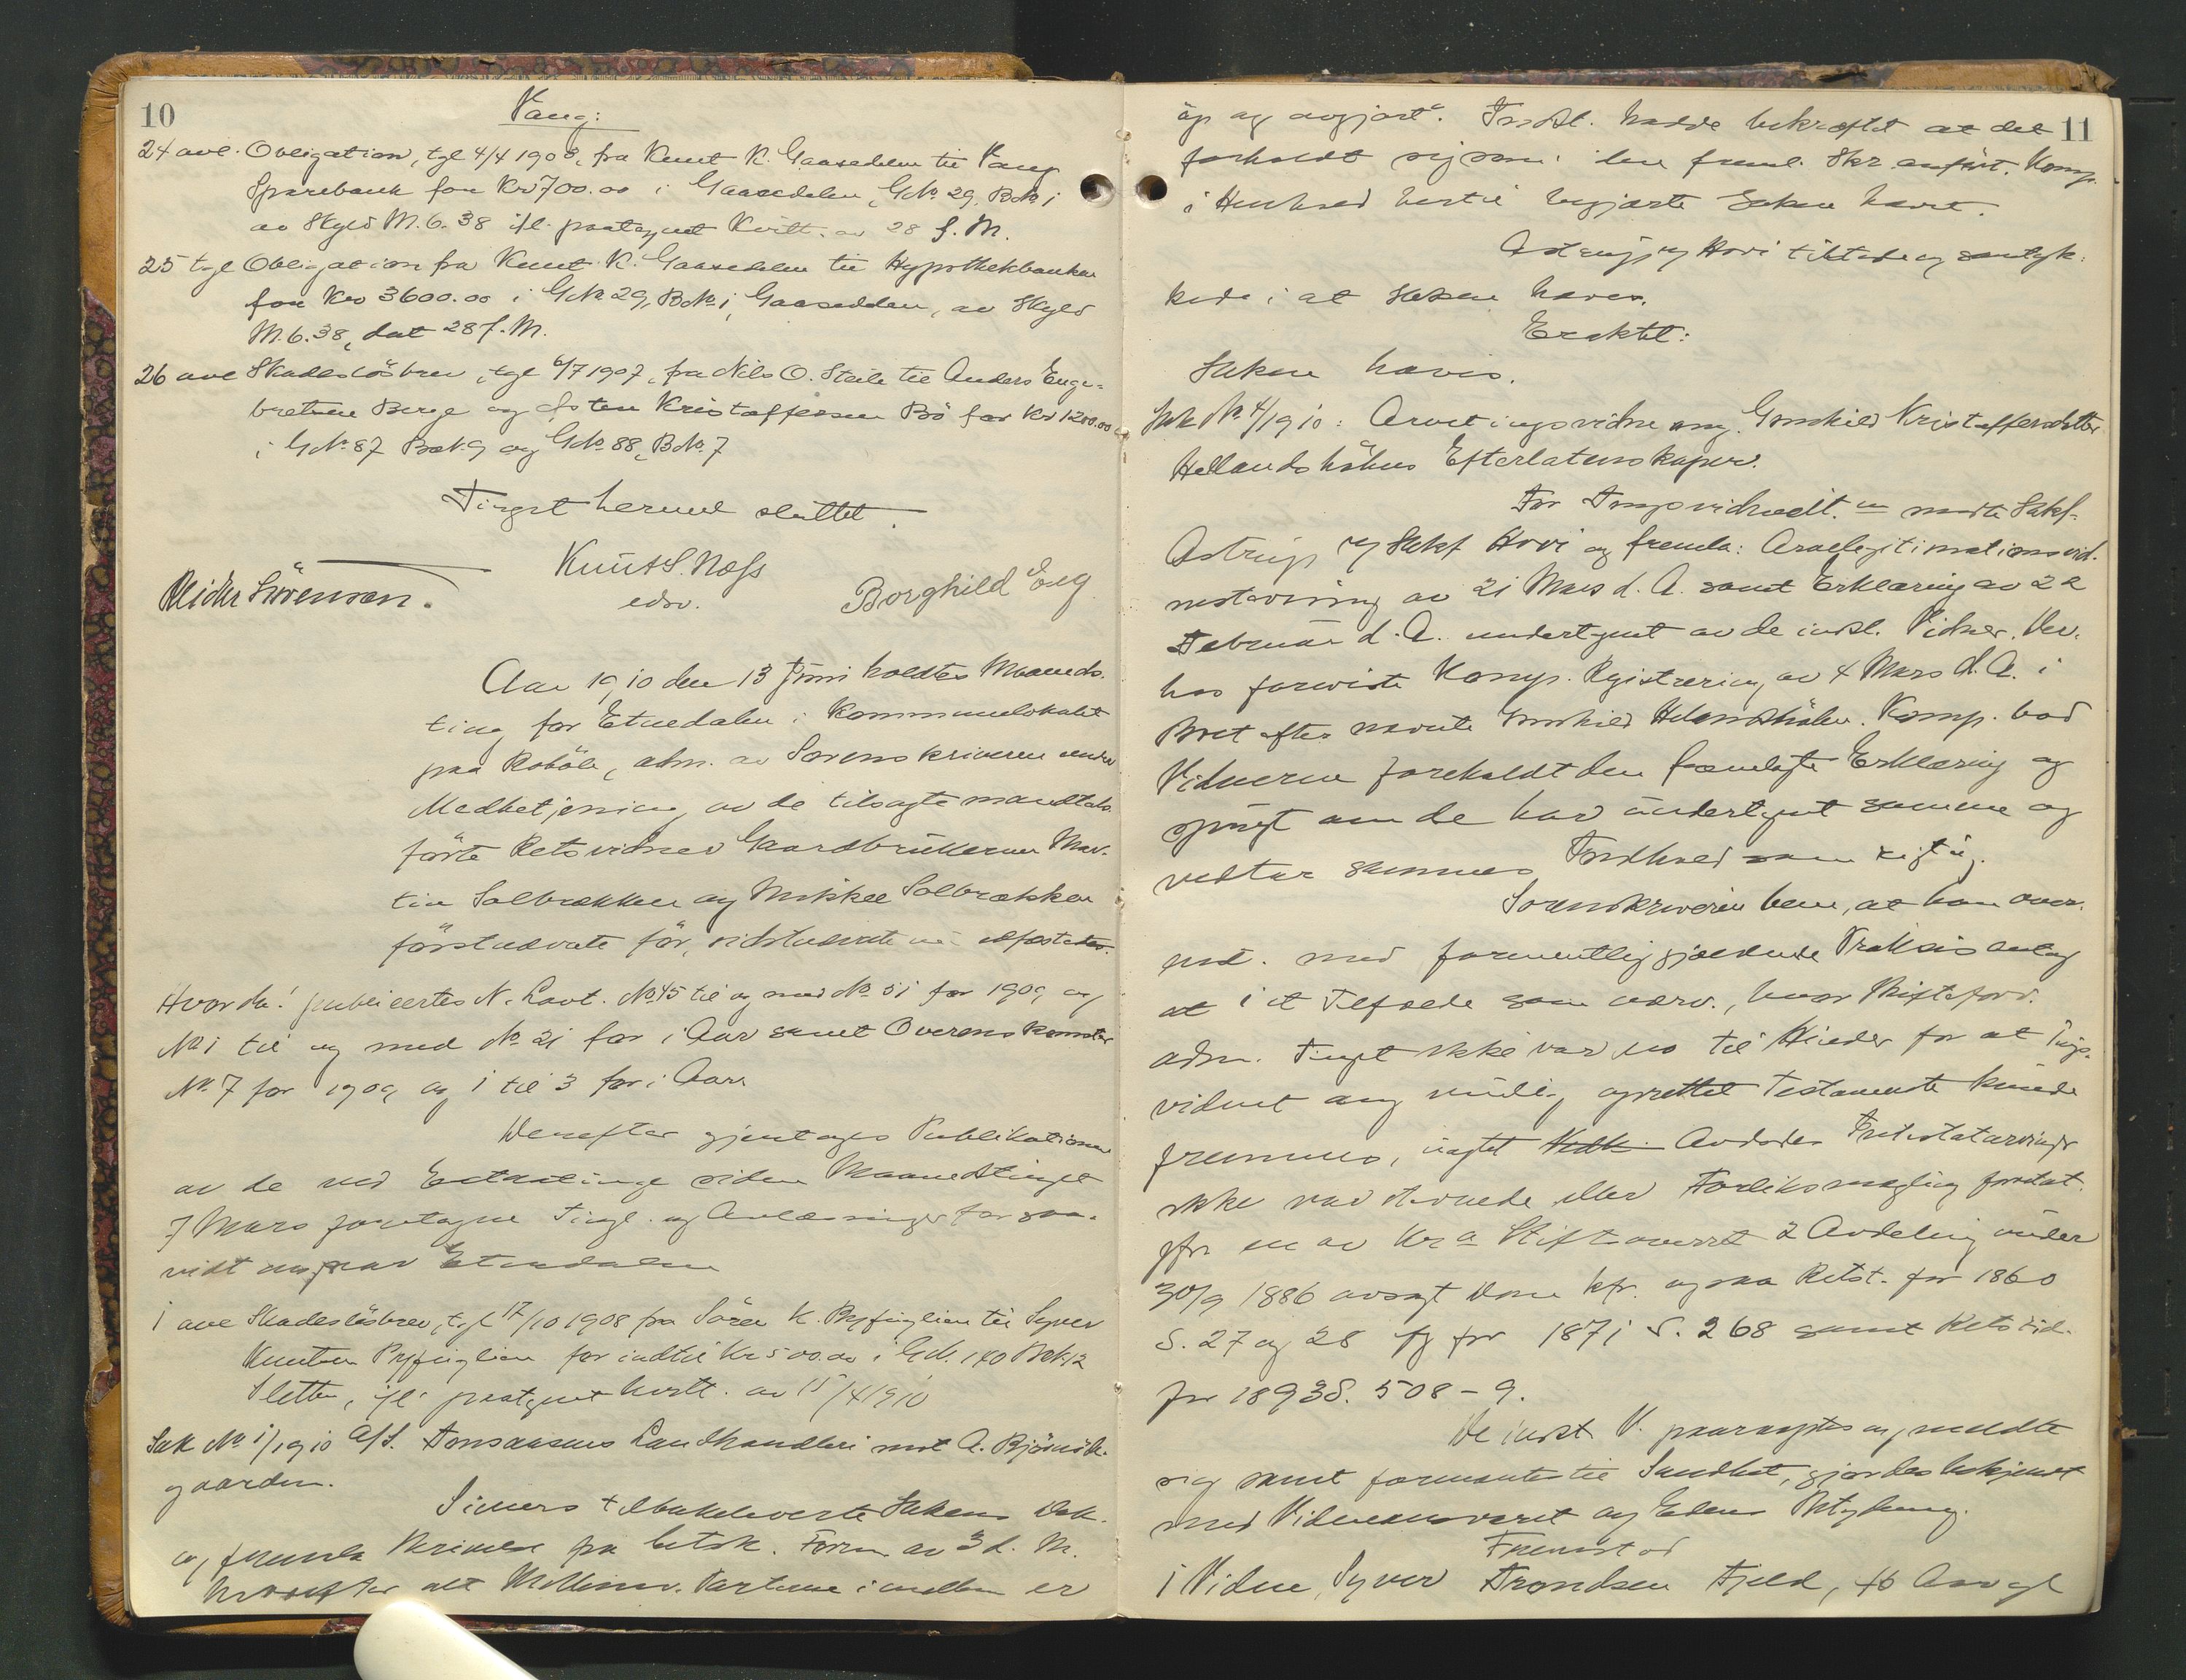 10
Vang:
24 avl. Obligation, tgl 4/4 1908, fra Knut K. Gaasedelen til Vang
Sparebank for Kr 700.00 i Gaasedelen, GNo 29, BNo 1
av Skyld M. 6.38 ifl. paategnet Kvitt. av 28 f. M.
25 tgl Obligation fra Knut K. Gaasedelen til Hypothekbanken
for Kr 3600.00 i GNo 29, BNo 1, Gaasedelen, av Skyld
M. 6.38, dat 28 f. M.
26 avl Skadeslösbrev, tgl 6/7 1907, fra Nils O. Steile til Anders Enge-
bretsen Berge og Østen Kristoffersen Bö for Kr 1200.00
i GNo 87 BNo 9 og GNo 88, BNo 7
Tinget hermed sluttet.
Knut S. Næss
edsv.
Borghild Eng
Sörensen.
Aar 1910 den 13 Juni holdtes Maaneds-
ting for Etnedalen i Kommunelokalet
paa Roböle, adm. av Sorenskriveren under
Medbetjening av de tilsagte mandtals-
förte Retsvidner Gaardbrukerne Mar-
tin Solbrækken og Mikkel Solbrækken
förstnævnte för, sidstnævnte nu edfæstedes.
Hvorda: publicertes N. Lovt. No 45 til og med No 51 for 1909 og
No 1 til og med No 21 for i Aar samt Overenskomster
No 7 for 1909 og 1 til 3 for i Aar.
Derefter gjentages Publikationen
av de ved Extrating siden Maanedstinget
7 Mars foretagne Tingl. og Avlæsninger for saa-
vidt Etnedalen
1 avl Skadeslösbrev, tgl 17/10 1908 fra Sören K. Bryfinglien til Syver
Knutsen Bryfinglien for indtil Kr 500.00 i GNo. 140 BNo 12
Sletten, ifl. paategnet kvitt. av 15/4 1910
Sak No 1/1910 A/S. Tonsaasens Landhandleri mot A. Björnsk.
gaarden.
Simers tilbakeleverte Sakens Dok.
og fremla Skrivelse fra betsk. Form av 3 d. M.
hvorefter alt Mellemv. Parterne imellem er
11
op og avgjort". Indst. hadde bekræftet at det
forholdt sig som i den freml. Skr. anfört. Komp.
i Henhold hertil begjærte Saken hævet.
Astrup og Hovi tiltraadte og samtyk-
kede i at Saken hæves.
Eraktet:
Saken hæves.
Sak No 4/1910: Arvetingsvidne ang. Gunhild Kristoffersdatter
Hellandshöhns Efterlatenskaper.
For Tingsvidnedt. mödte Sakf.
Astrup og Sakf Hovi og fremla: Arvelegitimationsvid-
nestævning av 21 Mars d. A. samt Erklæring av 22
Februar d. A. undertegnet av de indst. Vidner. Der-
hos foreviste Komp. Registrering av 4 Mars d. A. i
Boet efter nævnte Gunhild Hellandshöhn. Komp. bad
Vidnerne foreholdt den fremlagte Erklæring og
spurgt om de har undertegnet samme og
vedtar sammes Indhold som rigtig.
Sorenskriveren bem., at han over-
ensst. med formentlig gjældende Praksis antog
at i et Tilfælde som nærv., hvor Skiftsforv.
adm. Tinget ikke var no til Hinder for at Tings-
vidnet ang mulig oprettet Testamente kunde
fremmes, uagtet Avdödes Intestatarvinger
ikke var stevnede eller Forliksmægling foretat.
jfr en av Kr.a Stiftsoverret 2 Avdeling under
30/9 1886 avsagt Dom kfr. ogsaa Retst. for 1860
S. 27 og 28 og for 1871 S. 268 samt Retstid.
for 1893 S. 508-9.
De indst. V. paaraaptes og meldte
sig samt formantes til Sandhet, gjordes bekjendt
med Vidneansvaret og Edens Betydning.
Fremstod
1 Vidne, Syver Trondsen Fjeld, 46 Aar gl